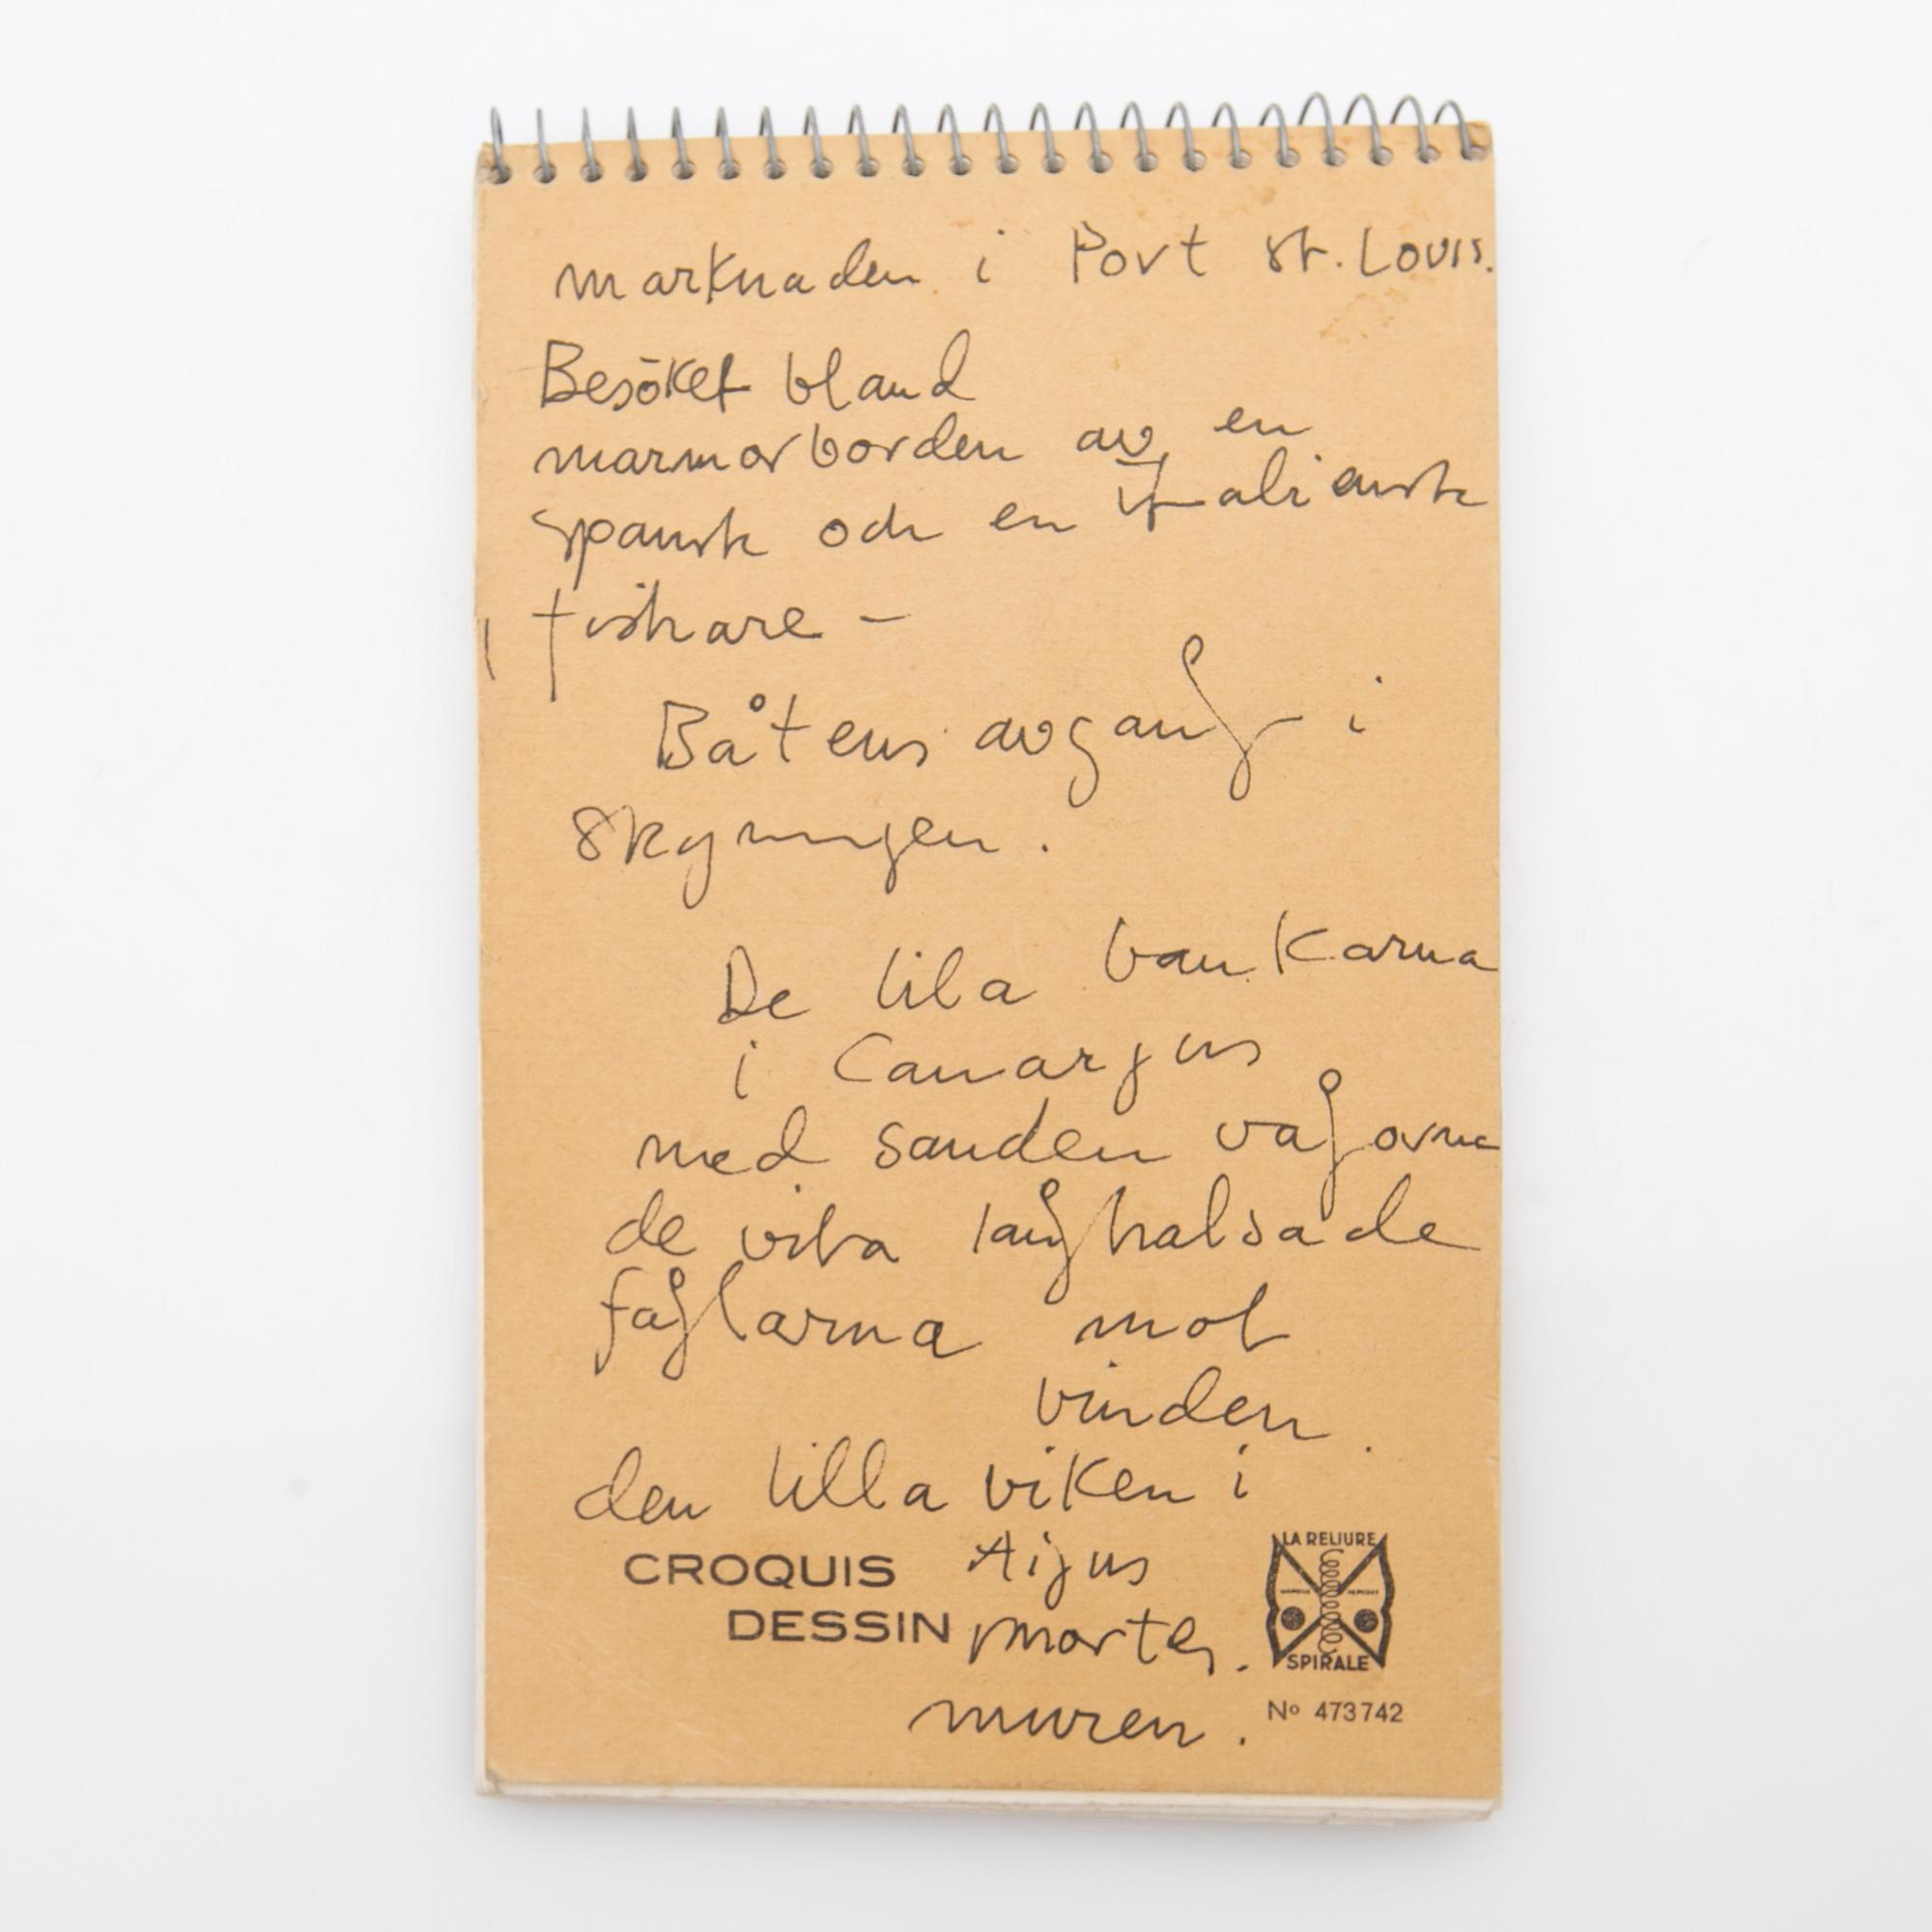 marknaden i Port St. Louis.
Besöket bland
marmorborden av en
spansk och en italiensk
fiskare –
Båtens avgang i
Skymingen.
De lila bankarna
i Camargus
med sanden vågorna
de vita långhalsade
fåglarna mot
vinden.
den lilla viken i
Aigus
mortes.
muren.
CROQUIS
DESSIN
LA RELIURE
SPIRALE
Nº 473742